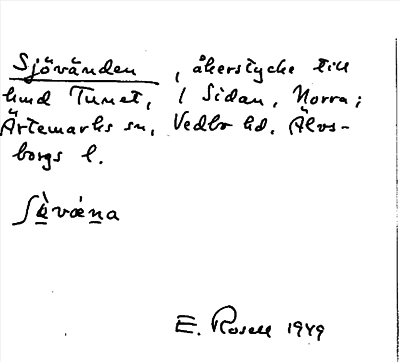 Sjövänden, åkerstycke till
hmd Tunet, i Sidan, Norra;
Ärtemarks sn, Vedbo hd, Älvs-
borgs l.
E. Rosell 1949